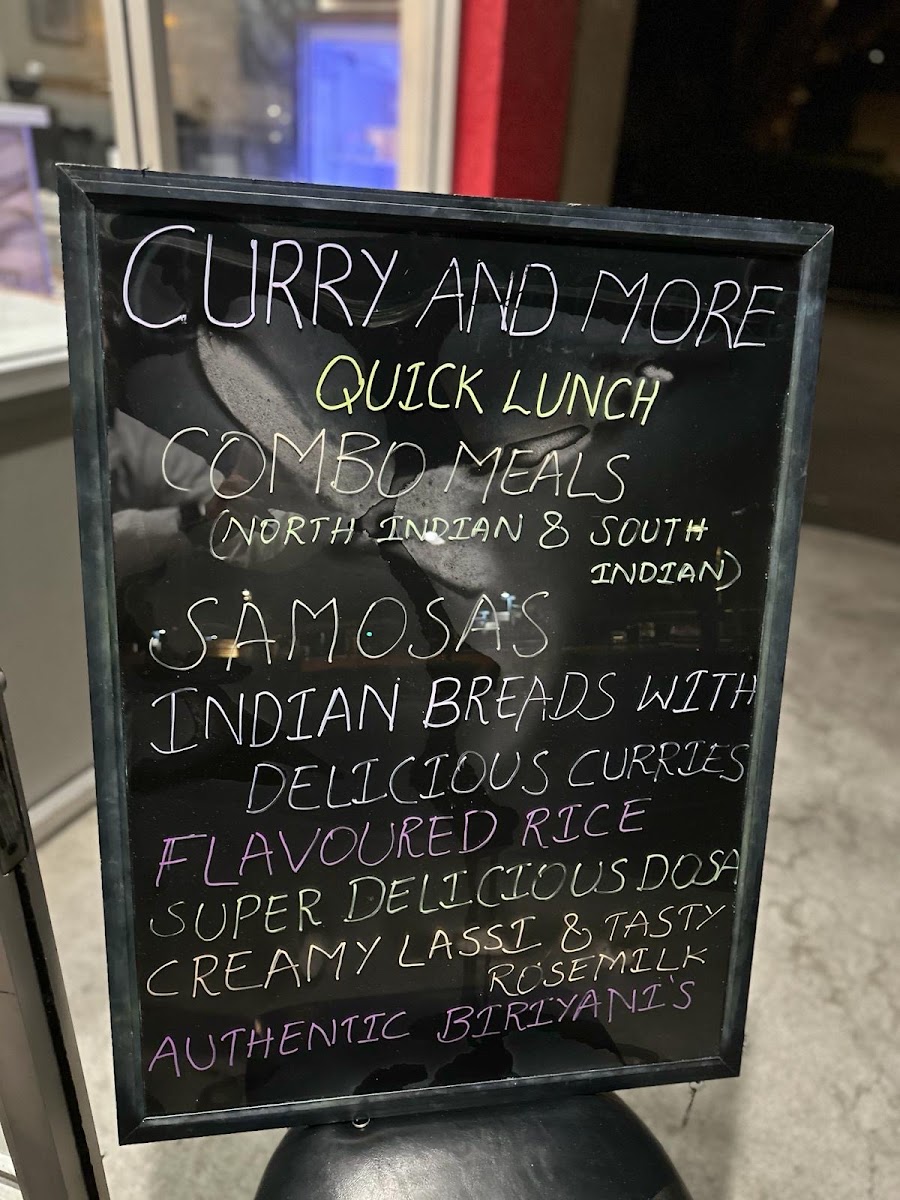 CURRY AND MORE
QUICK LUNCH
COMBO MEALS
(NORTH INDIAN & SOUTH
INDIAN)
SAMOSAS
INDIAN BREADS WITH
DELICIOUS CURRIES
FLAVOURED RICE
SUPER DELICIOUS DOSA
CREAMY LASSI & TASTY
ROSEMILK
AUTHENTIC BIRIYANI'S